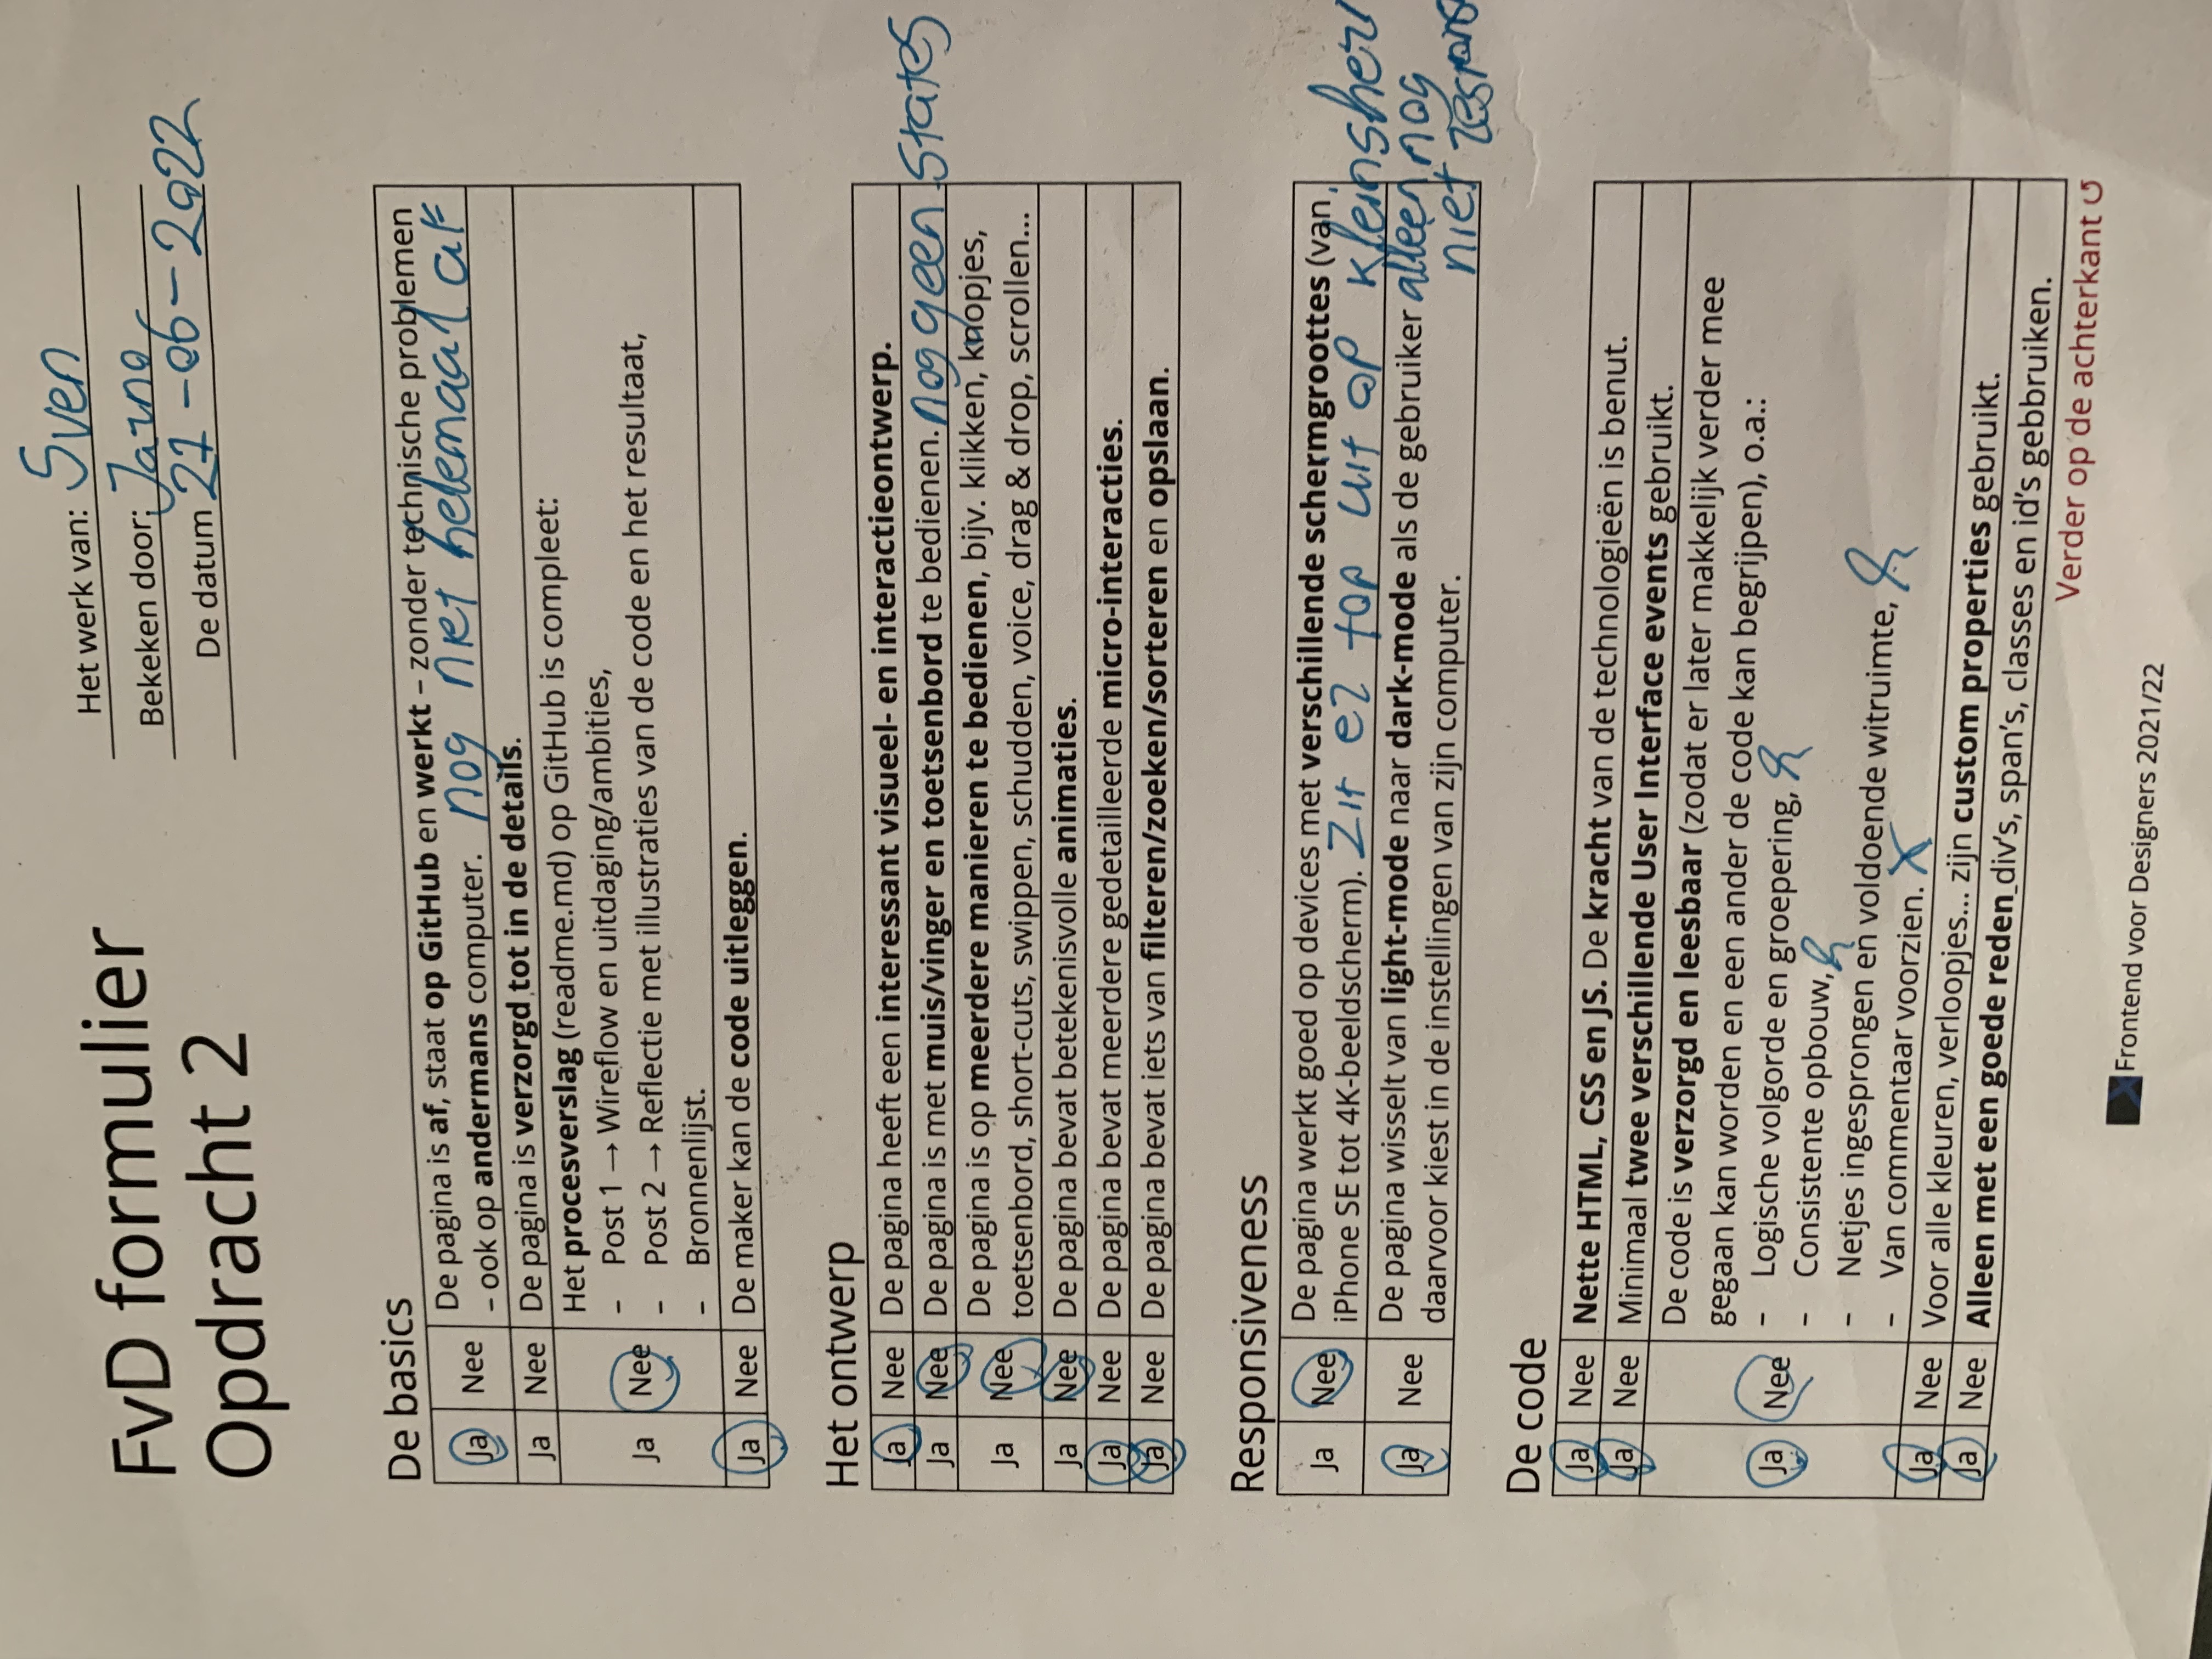 FvD formulier
Opdracht 2
Het werk van: Sven
Bekeken door: Jarno
De datum 27-06-2022
De basics
Ja Nee De pagina is af, staat op GitHub en werkt – zonder technische problemen
– ook op andermans computer. nog niet helemaal af
Ja Nee De pagina is verzorgd tot in de details.
Het procesverslag (readme.md) op GitHub is compleet:
– Post 1 → Wireflow en uitdaging/ambities,
Ja Nee
– Post 2 → Reflectie met illustraties van de code en het resultaat,
– Bronnenlijst.
Ja Nee De maker kan de code uitleggen.
Het ontwerp
Ja Nee De pagina heeft een interessant visueel- en interactieontwerp.
Ja Nee De pagina is met muis/vinger en toetsenbord te bedienen. nog geen states
Ja Nee De pagina is op meerdere manieren te bedienen, bijv. klikken, knopjes,
toetsenbord, short-cuts, swippen, schudden, voice, drag & drop, scrollen...
Ja Nee De pagina bevat betekenisvolle animaties.
Ja Nee De pagina bevat meerdere gedetailleerde micro-interacties.
Ja Nee De pagina bevat iets van filteren/zoeken/sorteren en opslaan.
Responsiveness
Ja Nee De pagina werkt goed op devices met verschillende schermgroottes (van
iPhone SE tot 4K-beeldscherm). Zit er top uit op klein
Ja Nee De pagina wisselt van light-mode naar dark-mode als de gebruiker alleen nog
daarvoor kiest in de instellingen van zijn computer. niet respons
De code
Ja Nee Nette HTML, CSS en JS. De kracht van de technologieën is benut.
Ja Nee Minimaal twee verschillende User Interface events gebruikt.
De code is verzorgd en leesbaar (zodat er later makkelijk verder mee
gegaan kan worden en een ander de code kan begrijpen), o.a.:
Ja Nee – Logische volgorde en groepering,
– Consistente opbouw,
– Netjes ingesprongen en voldoende witruimte,
– Van commentaar voorzien. X
Ja Nee Voor alle kleuren, verloopjes... zijn custom properties gebruikt.
Ja Nee Alleen met een goede reden div's, span's, classes en id's gebbruiken.
Verder op de achterkant ↺
Frontend voor Designers 2021/22